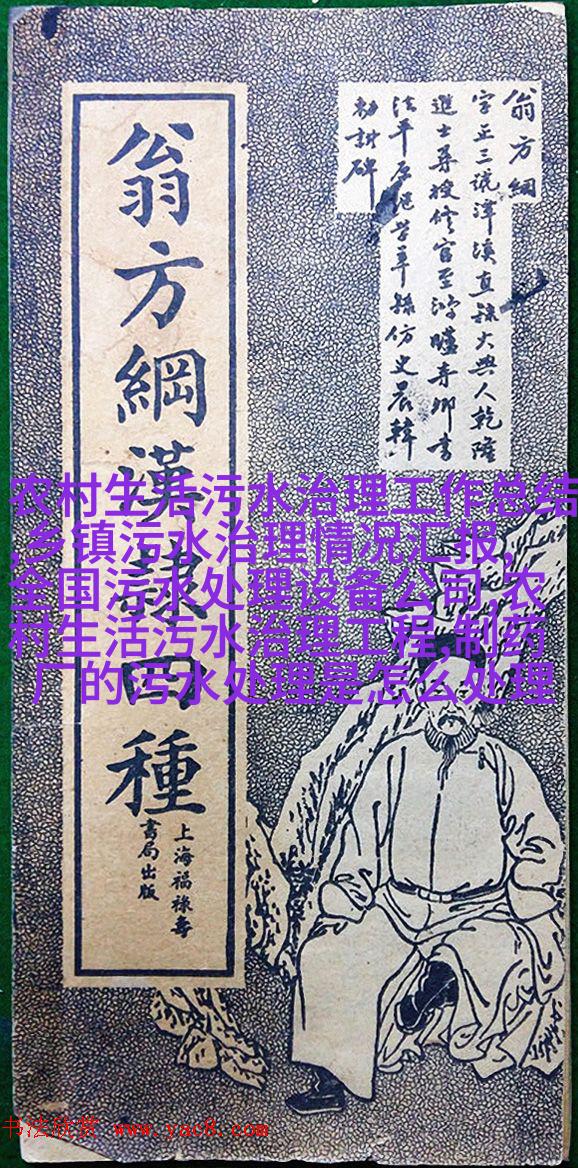 翁方綱
字正三號潭溪直隸大興人乾隆
進士尋授修官至鴻臚寺卿書
法平原繼苦率縣仿史晨韓
勑封碑
翁方綱漢隸四種
上海福祿壽
書局出版
农村生活污水治理工作总结
,乡镇污水治理情况汇报,
全国污水处理设备公司,农
村生活污水治理工程,制药
厂的污水处理是怎么处理
书法欣赏 www.yac8.com